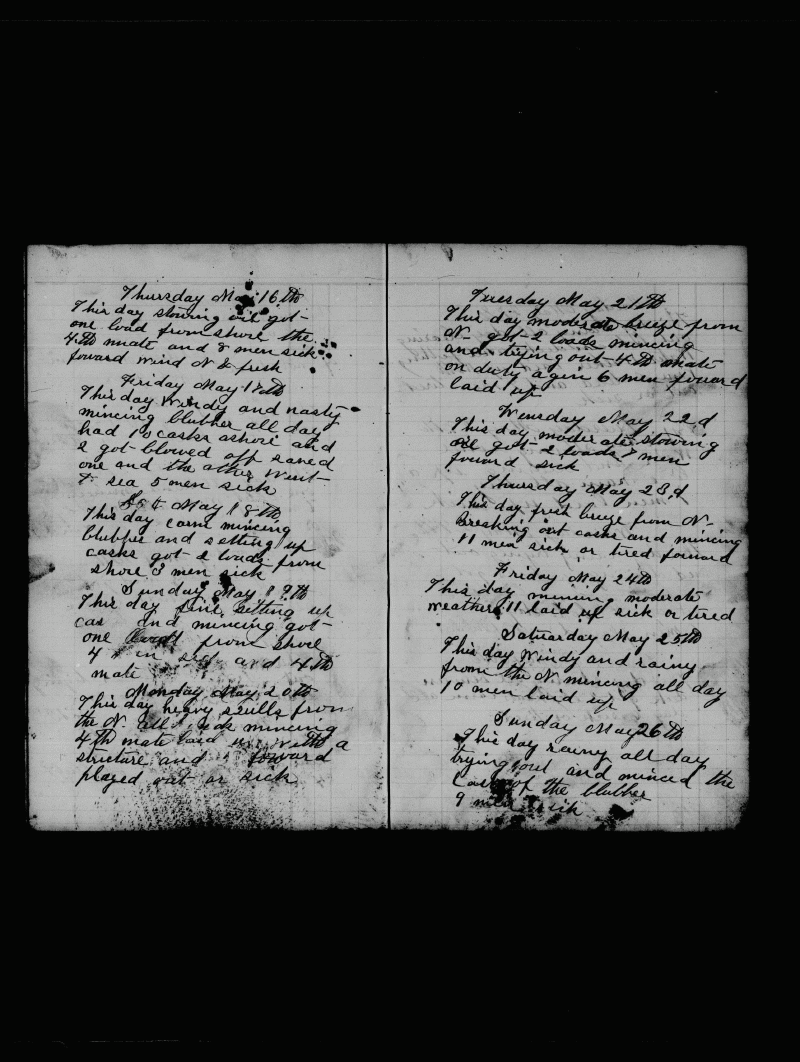 Thursday May 16th
This day stowing oil got
one load from shore the
4th mate and 8 men sick
foward wind N & fresh
Friday May 17th
This day Windy and nasty
mincing blubber all day
had 10 casks ashore and
2 got blowed off saved
one and the other Went
to sea 5 men sick
Sat May 18th
This day calm mincing
blubber and setting up
casks got 2 loads from
shore 8 men sick
Sunday May 19th
This day fine setting up
cas and mincing got
one load from shore
4 sick and 4th
mate
Monday May 20th
This day heavy squlls from
the N. all mincing
4th mate laid up with a
stricture and foward
played out or sick
Tuesday May 21th
This day moderate breeze from
N- got 2 loads mincing
and trying out 4th mate
on duty agin 6 men foward
laid up
Wensday May 22d
This day moderate stowing
oil got 2 loads 7 men
foward sick
Thursday May 23d
This day fresh breeze from N-
Breaking out casks and mincing
11 men sick or tired foward
Friday May 24th
This day mincing moderate
weather 11 laid up sick or tired
Saturday May 25th
This day Windy and rainy
from the N. mincing all day
10 men laid up
Sunday May 26th
This day rainy all day
trying out and minced the
Last of the blubber
9 men sick